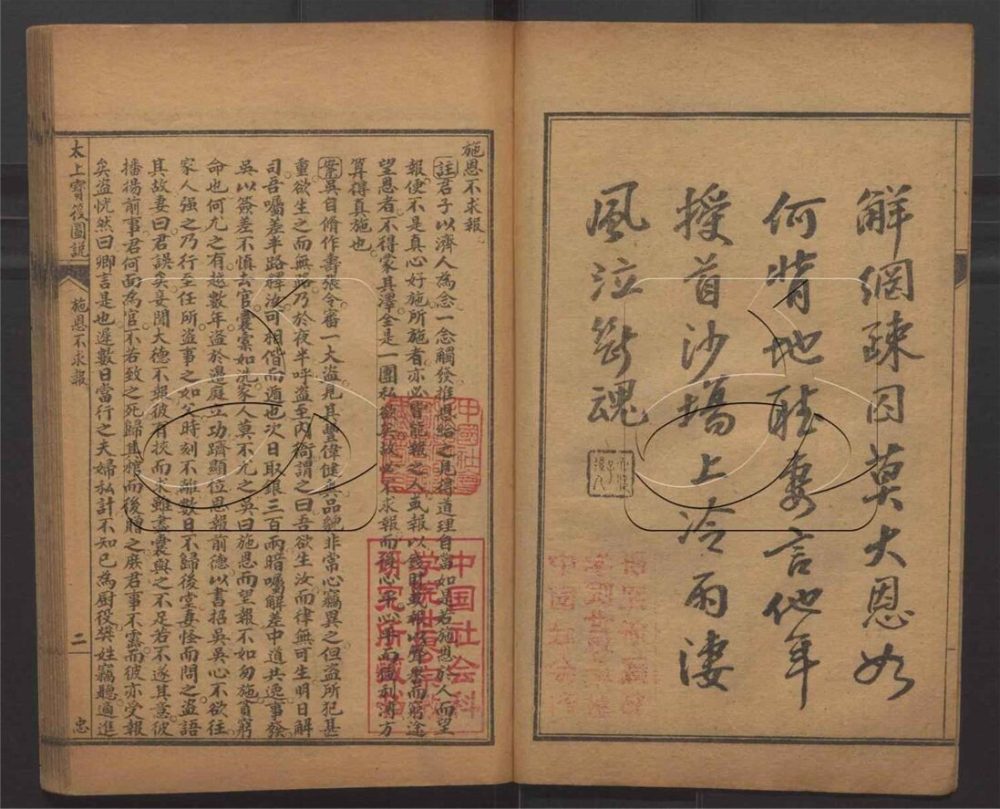 解網疎囚莫大恩如
何背地聽妻言他年
授首沙場上冷雨淒
風泣斷魂
施恩不求報
註君子以濟人為念一念觸發推恩給之見得道理自當如是若施恩於人而望
報便不是真心好施所施者亦必皆能報之人或報以或報以而窮途
望恩者不得蒙其澤全是一團私故必不求報而後心平心平而德利溥方
算得真施也
案吳自脩作壽張令審一大盜見其豐偉健與品貌非常心竊異之但盜所犯甚
重欲生之而無路乃於夜半呼盜至內衙謂之曰吾欲生汝而律無可生明日解
司吾囑差半路釋汝可相偕而遁也次日取銀三百兩暗囑解差中道共逸事發
吳以簽差不慎去官囊橐如洗家人莫不尤之吳曰施恩而望報不如勿施貧窮
命也何尤之有越數年盜於邊庭立功躋顯位思報前德以書招吳吳心不欲往
家人強之乃行至任所盜事之如父時刻不離數日不歸後堂妻怪而問之盜語
其故妻曰君誤矣吾聞大德不報彼有挾而求雖盡囊與之不足若不遂其意彼
播揚前事君何面為官不若致之死歸其棺而後贈之庶君事不露而彼亦受報
矣盜恍然曰卿言是也遲數日當行之夫婦私計不知已為廚役樊姓竊聽適進
太上寶筏圖說
施恩不求報
二
忠
中国社会科
学院世界宗教
研究所藏书